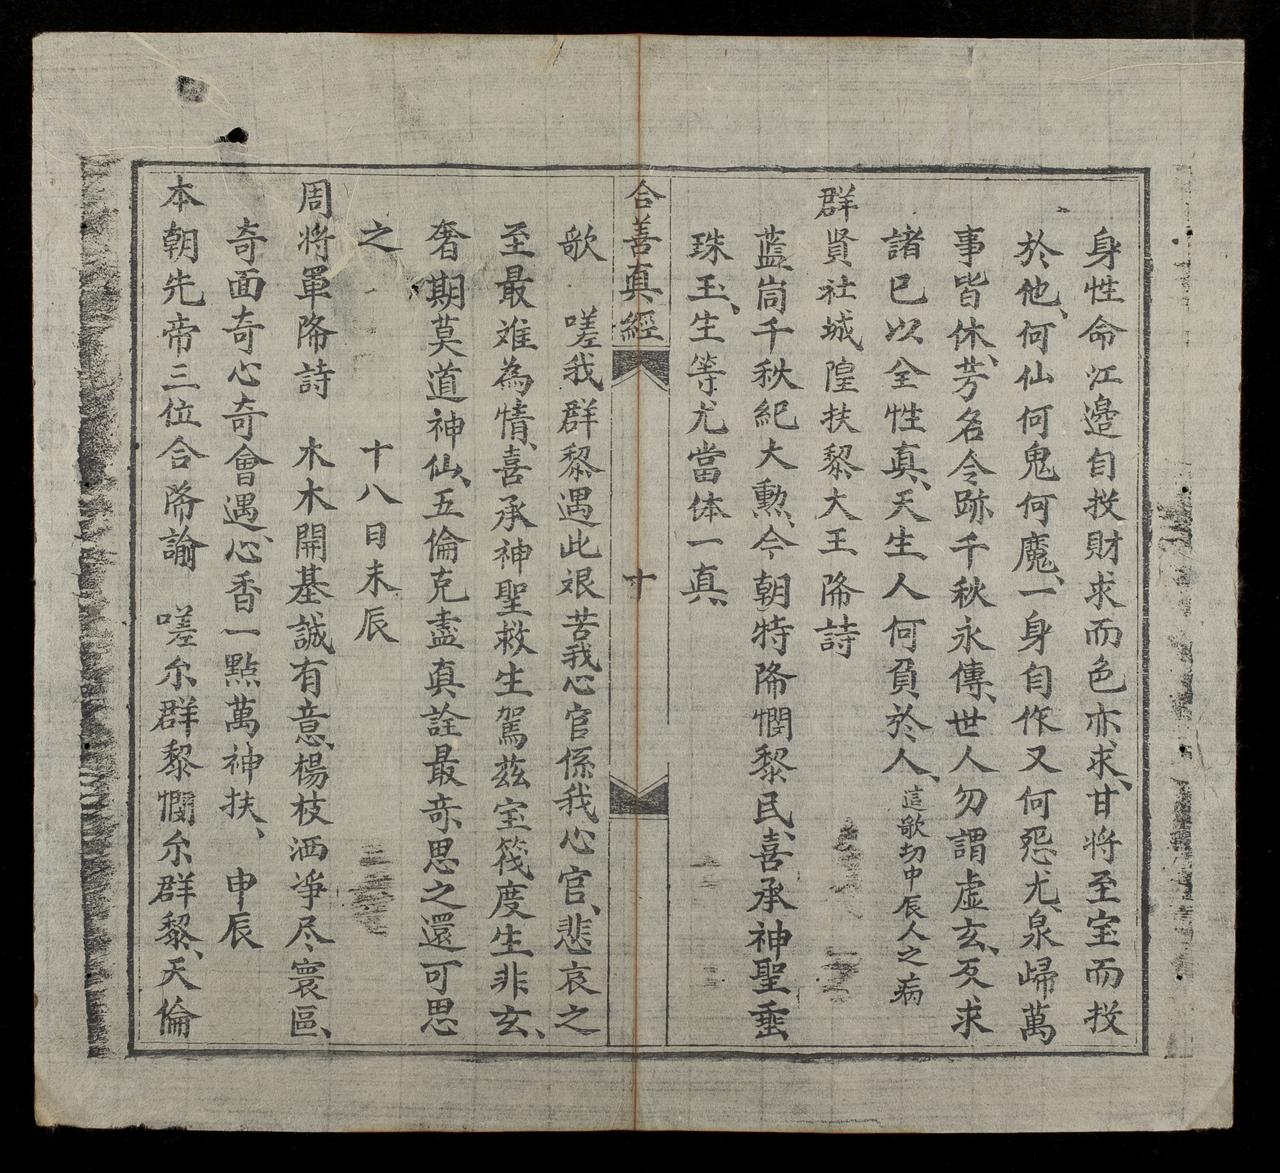 身性命江邉自投財求而色亦求、甘將至宝而投
於他、何仙何鬼何魔、一身自作又何怨尤、泉歸萬
事皆休、芳名令跡千秋永傳、世人勿謂虚玄、反求
諸己以全性真、天生人何負於人、這歌切中辰人之病
群賢社城隍扶黎大王降詩
藍峝千秋紀大勲、今朝特降憫黎民、喜承神聖垂
珠玉、生等尤當体一真、
合善真經 十
歌 嗟我群黎遇此艱苦我心官係我心官、悲哀之
至最难為情、喜承神聖救生駕茲宝筏度生非玄、
奢期莫道神仙、五倫克盡真詮最竒、思之還可思
之 十八日未辰
周將軍降詩 木木開基誠有意、楊枝洒凈尽寰區、
奇面奇心奇會遇、心香一點萬神扶、 申辰
本朝先帝三位合降諭 嗟尔群黎憫尔群黎、天倫